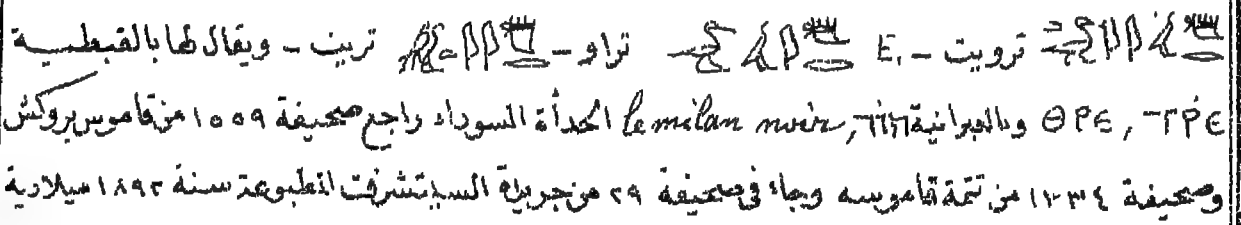 ترويت - .E تراو - تريت - ويقال لها بالقبطية
ⲐⲢⲈ , ⲦⲢⲈ وبالعبرانية le milan noir, الحدأة السوداء راجع صحيفة ١٥٥٩ من قاموس بروكش
وصحيفة ١٣٣٤ من تتمة قاموسه وجاء في صحيفة ٢٩ من جريدة السيتشرفت المطبوعة سنة ١٨٩٢ ميلادية